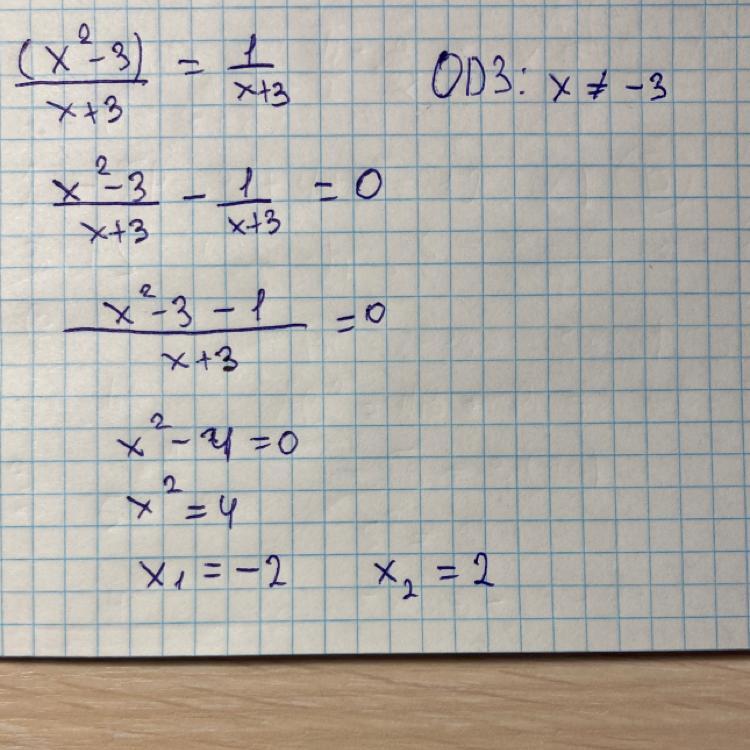 (x²-3)/(x+3) = 1/(x+3) ОДЗ: x ≠ -3
(x²-3)/(x+3) - 1/(x+3) = 0
(x²-3-1)/(x+3) = 0
x²-4=0
x²=4
x₁ = -2 x₂ = 2